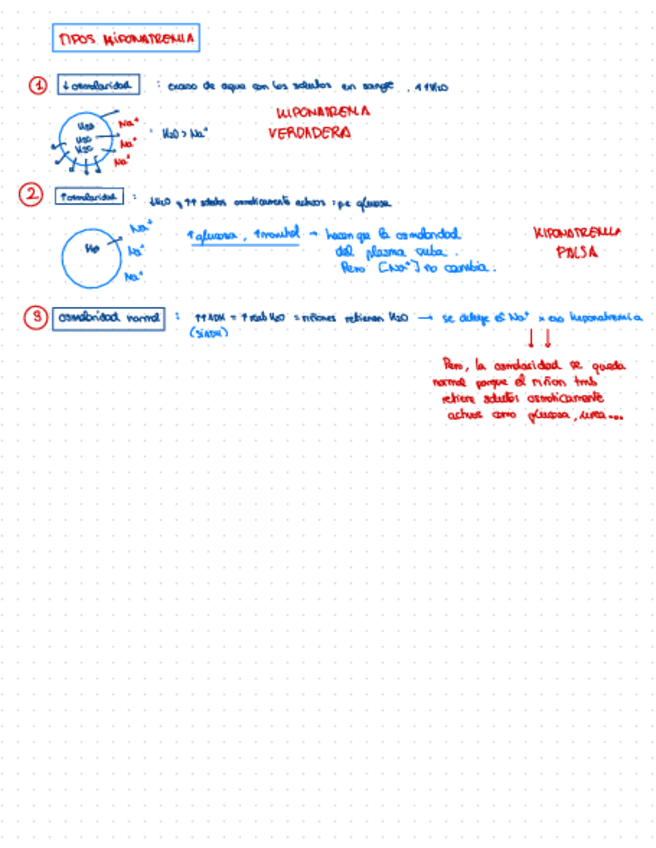 TIPOS HIPONATREMIA
① ↓ osmolaridad : exceso de agua con los solutos en sangre. ↑↑H₂O
HIPONATREMIA
VERDADERA
H₂O
H₂O
H₂O
Na⁺
Na⁺
Na⁺
: H₂O > Na⁺
② ↑osmolaridad : ↓H₂O y ↑↑ solutos osmóticamente activos : pe glucosa
H₂O
Na⁺
Na⁺
Na⁺
↑glucosa, ↑manitol → hacen que la osmolaridad
del plasma suba.
Pero [Na⁺] no cambia.
HIPONATREMIA
FALSA
③ osmolaridad normal : ↑↑ADH = ↑reab H₂O = riñones retienen H₂O → se diluye el Na⁺ x eso hiponatremia
(SIADH)
Pero, la osmolaridad se queda
normal porque el riñon tmb
retiene solutos osmóticamente
activos como glucosa, urea...